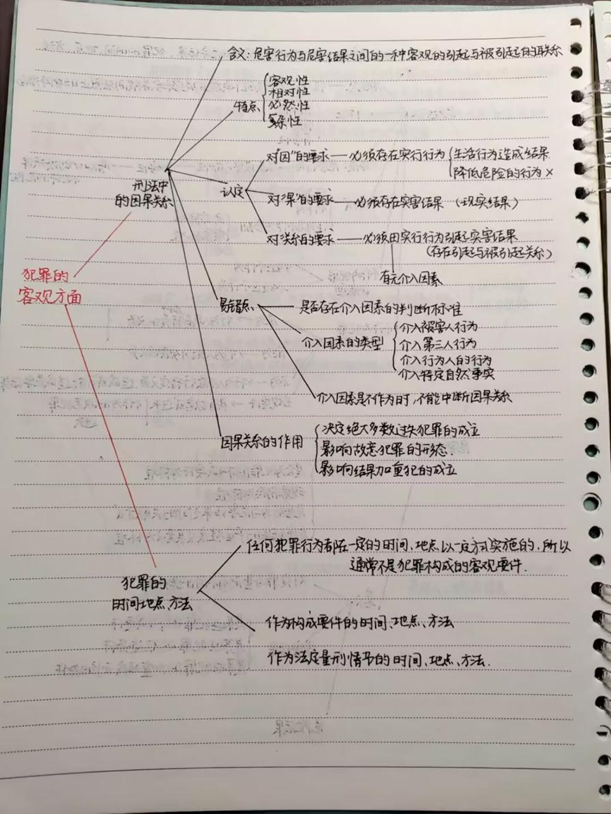 含义:危害行为与危害结果之间的一种客观的引起与被引起的联系
特点
客观性
相对性
必然性
复杂性
刑法中
的因果关系
认定
对“因”的要求——必须存在实行行为
生活行为造成结果
降低危险的行为×
对“果”的要求——必须存在实害结果(现实结果)
对关系的要求——必须由实行行为引起实害结果
(存在引起与被引起关系)
有无介入因素
犯罪的
客观方面
是否存在介入因素的判断标准
介入因素的类型
介入被害人行为
介入第三人行为
介入行为人的行为
介入特定自然事实
介入因素是不作为时,不能中断因果关系
因果关系的作用
决定绝大多数过失犯罪的成立
影响故意犯罪的形态
影响结果加重犯的成立
任何犯罪行为都在一定的时间、地点以一定方式实施的,所以
通常不是犯罪构成的客观要件.
犯罪的
时间、地点、方法
作为构成要件的时间、地点、方法
作为法定量刑情节的时间、地点、方法.